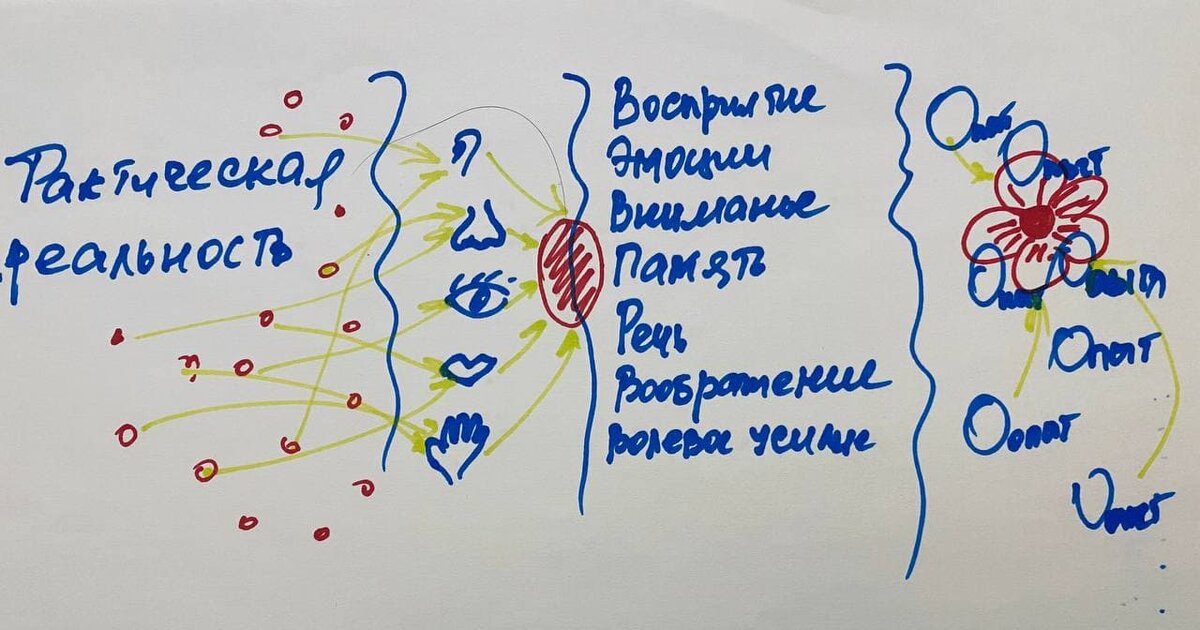 Фактическая
реальность
Восприятие
Эмоции
Вниманье
Память
Речь
Воображение
Волевое усилие
Опыт
Опыт
Опыт
Опыт
Опыт
Опыт
Опыт